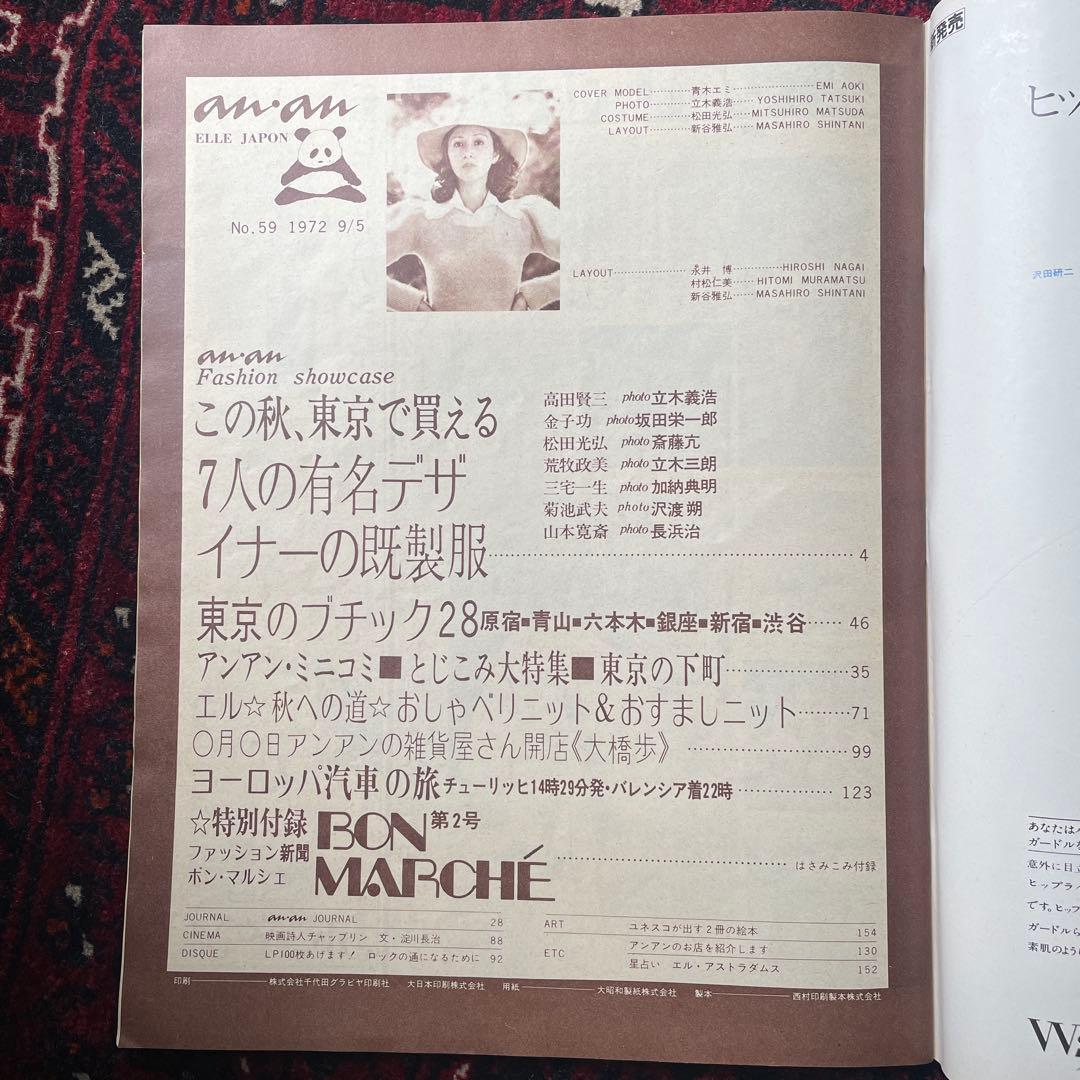 an・an
ELLE JAPON
No.59 1972 9/5
COVER MODEL………青木エミ………EMI AOKI
PHOTO………立木義浩……YOSHIHIRO TATSUKI
COSTUME………松田光弘……MITSUHIRO MATSUDA
LAYOUT………新谷雅弘……MASAHIRO SHINTANI
LAYOUT………永井 博………HIROSHI NAGAI
村松仁美……HITOMI MURAMATSU
新谷雅弘……MASAHIRO SHINTANI
an・an
Fashion showcase
この秋、東京で買える
7人の有名デザ
イナーの既製服………4
高田賢三 photo立木義浩
金子功 photo坂田栄一郎
松田光弘 photo斎藤亢
荒牧政美 photo立木三朗
三宅一生 photo加納典明
菊池武夫 photo沢渡朔
山本寛斎 photo長浜治
東京のブチック28原宿■青山■六本木■銀座■新宿■渋谷……46
アンアン・ミニコミ■とじこみ大特集■東京の下町………35
エル☆秋への道☆おしゃべりニット&おすましニット………71
〇月〇日アンアンの雑貨屋さん開店《大橋歩》………99
ヨーロッパ汽車の旅チューリッヒ14時29分発・バレンシア着22時………123
☆特別付録
ファッション新聞
ボン・マルシェ
BON
MARCHÉ
第2号
………はさみこみ付録
JOURNAL an・an JOURNAL 28
CINEMA 映画詩人チャップリン 文・淀川長治 88
DISQUE LP100枚あげます! ロックの通になるために 92
ART ユネスコが出す2冊の絵本 154
ETC アンアンのお店を紹介します 130
星占い エル・アストラダムス 152
印刷――株式会社千代田グラビヤ印刷社 大日本印刷株式会社 用紙――大昭和製紙株式会社 製本――西村印刷製本株式会社
新発売
ヒッ
沢田研二
あなたは
ガードルを
意外に目立
ヒップラ
です。ヒッフ
ガードルら
素肌のよう